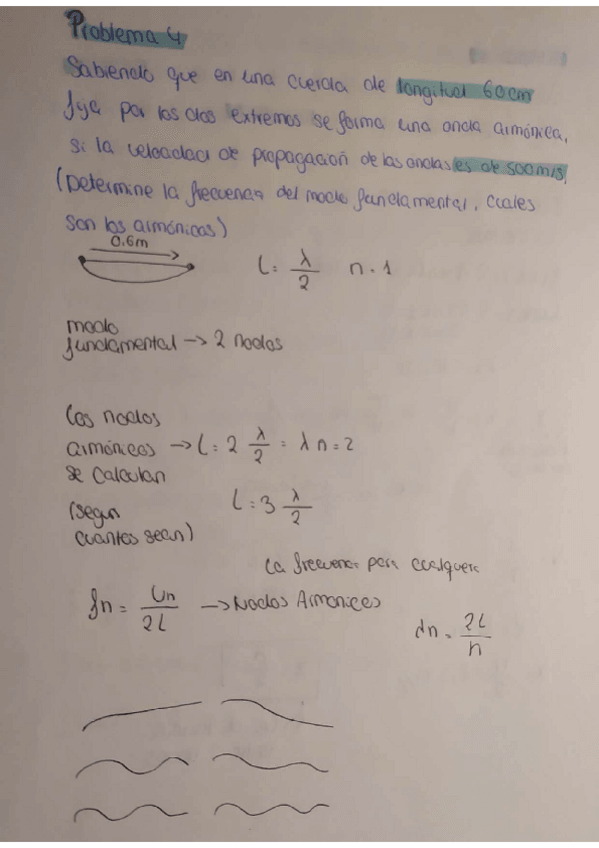 Problema 4
Sabiendo que en una cuerda de longitud 60cm
fija por los dos extremos se forma una onda armónica,
si la velocidad de propagación de las ondas es de 500m/s,
(Determine la frecuencia del modo fundamental, cuales
son los armónicos)
0.6m
L = λ/2 n = 1
modo
fundamental → 2 nodos
Los nodos
armónicos → L = 2 λ/2 = λ n = 2
se calculan
(segun
cuantos sean)
L = 3 λ/2
La frecuencia para cualquera
fn = Un/2L → Nodos Armonicos
λn = 2L/n